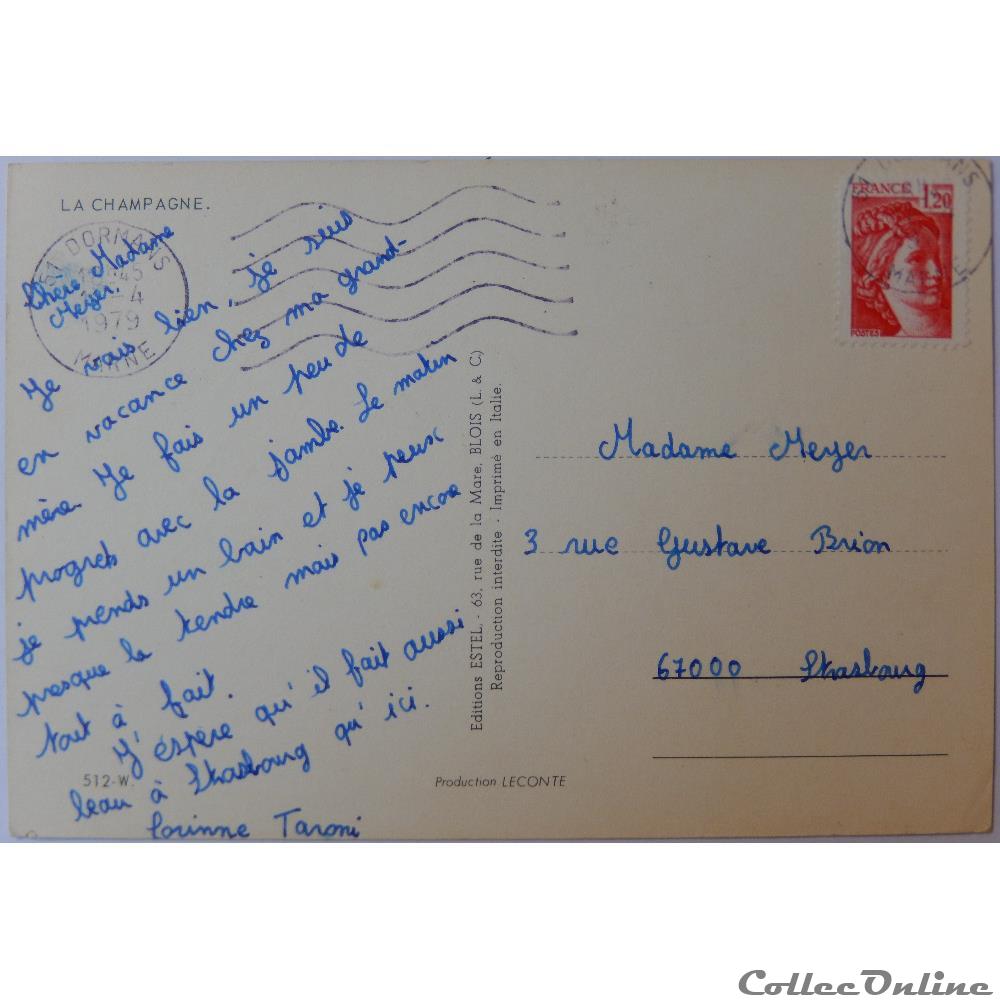 LA CHAMPAGNE.
51 DORMANS
45
-4
1979
MARNE
Chère Madame
Meyer.
Je vais bien, je suis
en vacance chez ma grand-
mère. Je fais un peu de
progrets avec la jambe. Le matin
je prends un bain et je peux
presque la tendre mais pas encore
tout à fait.
J'éspère qu'il fait aussi
beau à Strasbourg qu'ici.
Corinne Taroni
512-W.
Production LECONTE
Editions ESTEL, - 63, rue de la Mare, BLOIS (L. & C.)
Reproduction interdite - Imprimé en Italie.
FRANCE 1,20
POSTES
DORMANS
MARNE
Madame Meyer
3 rue Gustave Brion
67000 Strasbourg
CollecOnline